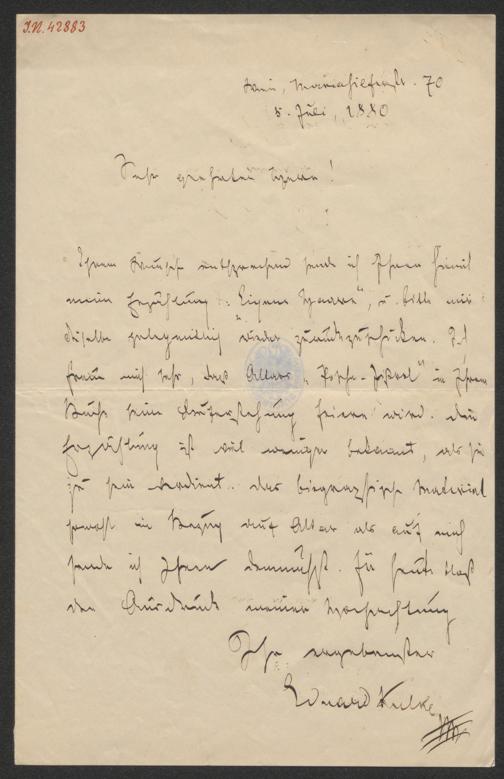 I.N. 42883
Wien, Mariahilferstr. 70
5. Juli, 1880
Sehr geehrter Herr!
Ihrem Wunsche entsprechend sende ich Ihnen hiemit
meine Erzählung: "Eigene Haare", u. bitte mir
dieselbe gelegentlich wieder zurückzuschicken. Es
freut mich sehr, dass Altars "Jossel" in Ihrem
Buche seine Auferstehung feiern wird. Die
Erzählung ist viel weniger bekannt, als sie
zu sein verdient. Das biographische Material
sowohl in Bezug auf Altar als auf mich
sende ich Ihnen demnächst. Für heute bloß
den Ausdruck meiner Hochachtung
Ihr ergebenster
Eduard Kulke